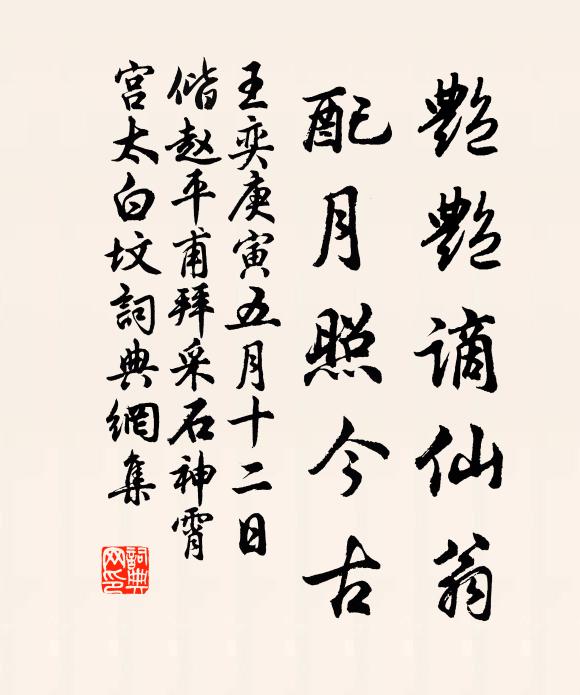 艷艷謫仙翁
配月照今古
王奕庚寅五月十二日
偕赵平甫拜采石神霄
宫太白坟詞典網集
詞典
网印